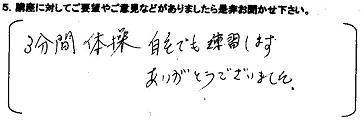 5. 講座に対してご要望やご意見などがありましたら是非お聞かせ下さい。
3分間 体操 自宅でも練習します
ありがとうございました。